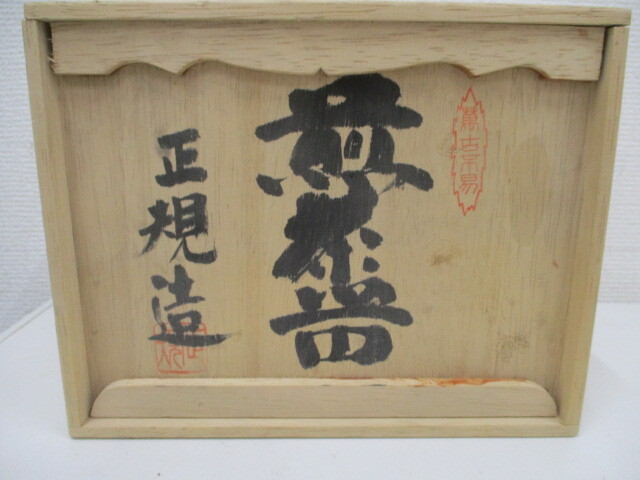 萬古不易
煎茶器
正規造